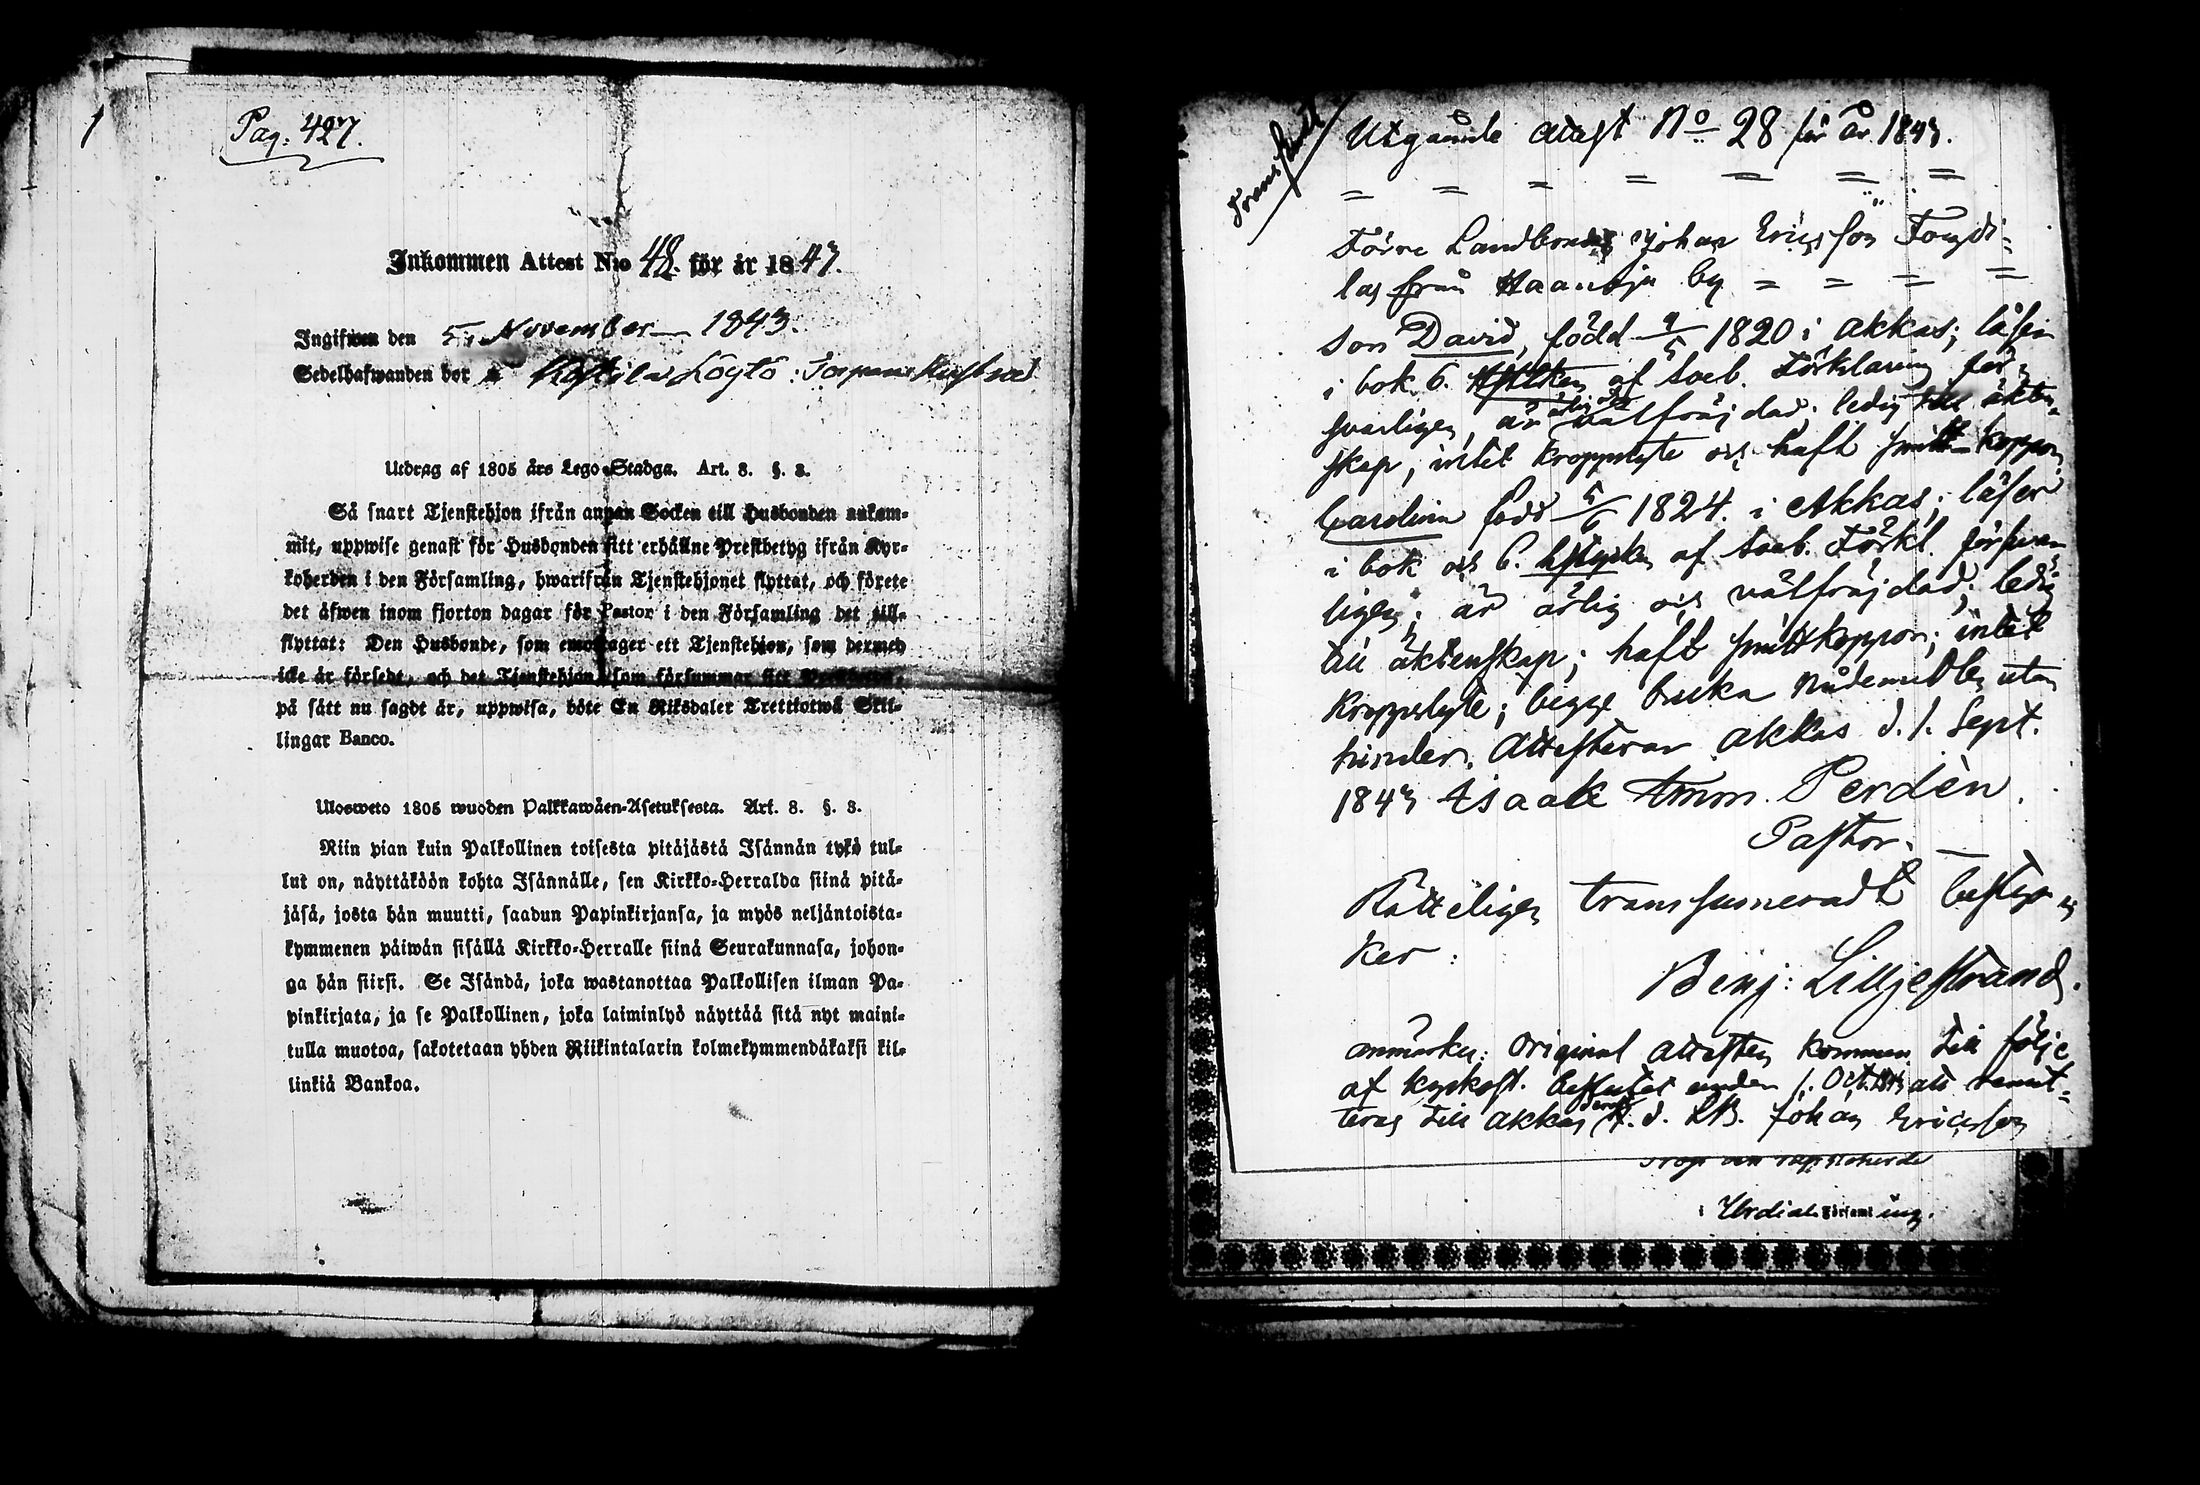 1
Pag. 427.
Inkommen Attest N:o 48. för år 1843.
Ingifwen den 5. November 1843.
Sedelhafwanden bor Löytö: Torpare
Utdrag af 1805 års Lego-Stadga. Art. 8. §. 3.
Så snart Tjenstehjon ifrån annan Socken till Husbonden ankom-
mit, uppwise genast för Husbonden sitt erhållne Prestbetyg ifrån Kyr-
koherden i den Församling, hwarifrån Tjenstehjonet flyttat, och förete
det äfwen inom fjorton dagar för Pastor i den Församling det till-
flyttat: Den Husbonde, som emottager ett Tjenstehjon, som dermed
icke är försedt, och det Tjenstehjon, som försummar sitt Prestbetyg,
på sätt nu sagdt är, uppwisa, böte En Riksdaler Trettiotwå Skil-
lingar Banco.
Ulosweto 1805 wuoden Palkkawäen-Asetuksesta. Art. 8. §. 3.
Niin pian kuin Palkollinen toisesta pitäjästä Isännän tykö tul-
lut on, näyttäköön kohta Isännälle, sen Kirkko-Herralda siinä pitä-
jäsä, josta hän muutti, saadun Papinkirjansa, ja myös neljäntoista-
kymmenen päiwän sisällä Kirkko-Herralle siinä Seurakunnasa, johon-
ga hän siirsi. Se Isändä, joka wastanottaa Palkollisen ilman Pa-
pinkirjata, ja se Palkollinen, joka laiminlyö näyttää sitä nyt maini-
tulla muotoa, sakotetaan yhden Riikintalarin kolmekymmendäkaksi kil-
linkiä Bankoa.
Utgående attest No 28 för år 1843.
Förre Landbonden Johan Ericsson
las från by = = = =
son David, född 9/5 1820 i Akkas; läser
i bok 6. af Soeb. Förklaring för-
svarligen, är ärlig och välfräjdad; ledig till äkten-
skap, intet kroppslyte och haft smittkoppor,
Carolina född 5/6 1824. i Akkas; läser
i bok och 6. af Soeb. Förkl. försvar-
ligen; är ärlig och välfräjdad; ledig
till äktenskap; haft smittkoppor; intet
kroppslyte; begge bruka Nådemedlen utan
hinder. Attesterar Akkas d. 1. Sept.
1843 Isaak Imm. Perdén.
Pastor.
Rätteligen transsumeradt bestyr-
ker:
Benj: Lilljestrand.
Anmärkn: Original attesten kommer till följe
af beslutet under 1. Oct. 1843 att remit-
teras till Akkas d. LB. Johan Ericsson
i Urdiala Församling.